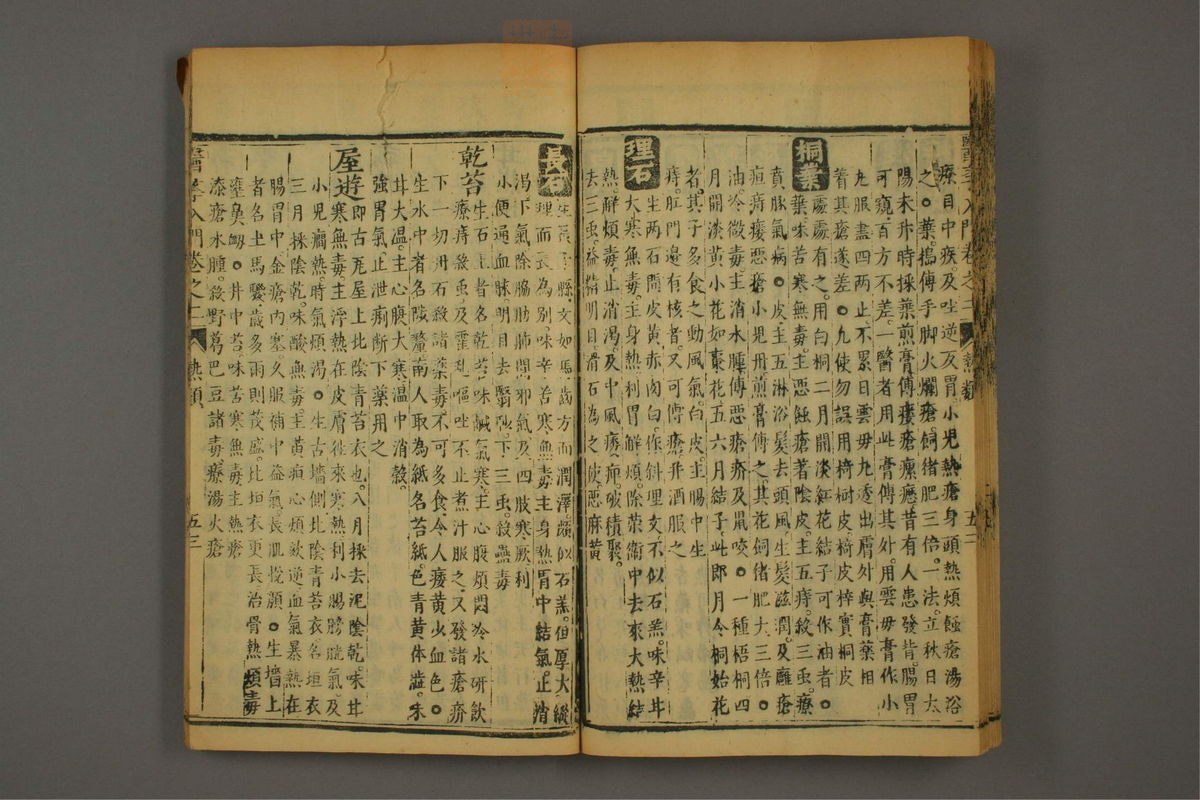 醫學入門卷之二 熱類 五三
療目中疾及吐逆反胃小兒熱瘡身頭熱煩蝕瘡湯浴
之○葉搗傅手脚火爛瘡飼猪肥三倍一法立秋日太
陽未升時採葉煎膏傅癭瘡瘰癧昔有人患發背腸胃
可窺百方不差一醫者用此膏傅其外用雲毋膏作小
丸服盡四兩止不累日雲毋丸透出膚外與膏藥相
着其瘡遂差○九使勿誤用椅樹皮椅皮梓實桐皮
桐葉處處有之用白桐二月開淡紅花結子可作油者○
葉味苦寒無毒主惡蝕瘡著陰皮主五痔殺三虫療
賁豚氣病○皮主五淋浴髮去頭風生髮滋潤及䧹瘡
疽痔瘻惡瘡小兒丹煎膏傅之其花飼猪肥大三倍○
油冷微毒主消水腫傅惡瘡疥及鼠咬○一種梧桐四
月開淡黃小花如棗花五六月結子此即月令桐始花
者其子多食之動風氣白皮主腸中生
痔肛門邊有核者又可傅瘡并酒服之
理石生兩石間皮黃赤肉白作斜理文不似石羔味辛甘
大寒無毒主身熱利胃解煩除榮衛中去來大熱結
熱解煩毒止消渴及中風痿痺破積聚
去三虫益精明目滑石為之使惡麻黃
長石生長子縣文如馬齒方而潤澤頗似石羔但厚大縱
理而長為別味辛苦寒無毒主身熱胃中結氣止消
渴下氣除脇肋肺間邪氣及四肢寒厥利
小便通血脉明目去翳眇下三虫殺蠱毒
乾苔生石上者名乾苔味鹹氣寒主心腹煩悶冷水研飲
療痔殺虫及霍乱嘔吐不止煮汁服之又發諸瘡疥
下一切丹石殺諸藥毒不可多食令人痿黃少血色○
生水中者名陟釐南人取為紙名苔紙色青黃体澁味
甘大溫主心腹大寒溫中消穀
強胃氣止泄痢斷下藥用之
屋遊即古瓦屋上北陰青苔衣也八月採去泥陰乾味甘
寒無毒主浮熱在皮膚往來寒熱利小腸膀胱氣及
小兒癇熱時氣煩渴○生古墻側北陰青苔衣名垣衣
三月採陰乾味酸無毒主黃疸心煩欬逆血氣暴熱在
腸胃中金瘡內塞久服補中益氣長肌悅顏○生墻上
者名土馬騣歲多雨則茂盛比垣衣更長治骨熱煩毒
壅鼻衄○井中苔味苦寒無毒主熱瘡
漆瘡水腫殺野葛巴豆諸毒療湯火瘡
醫學入門卷之二 熱類 五三